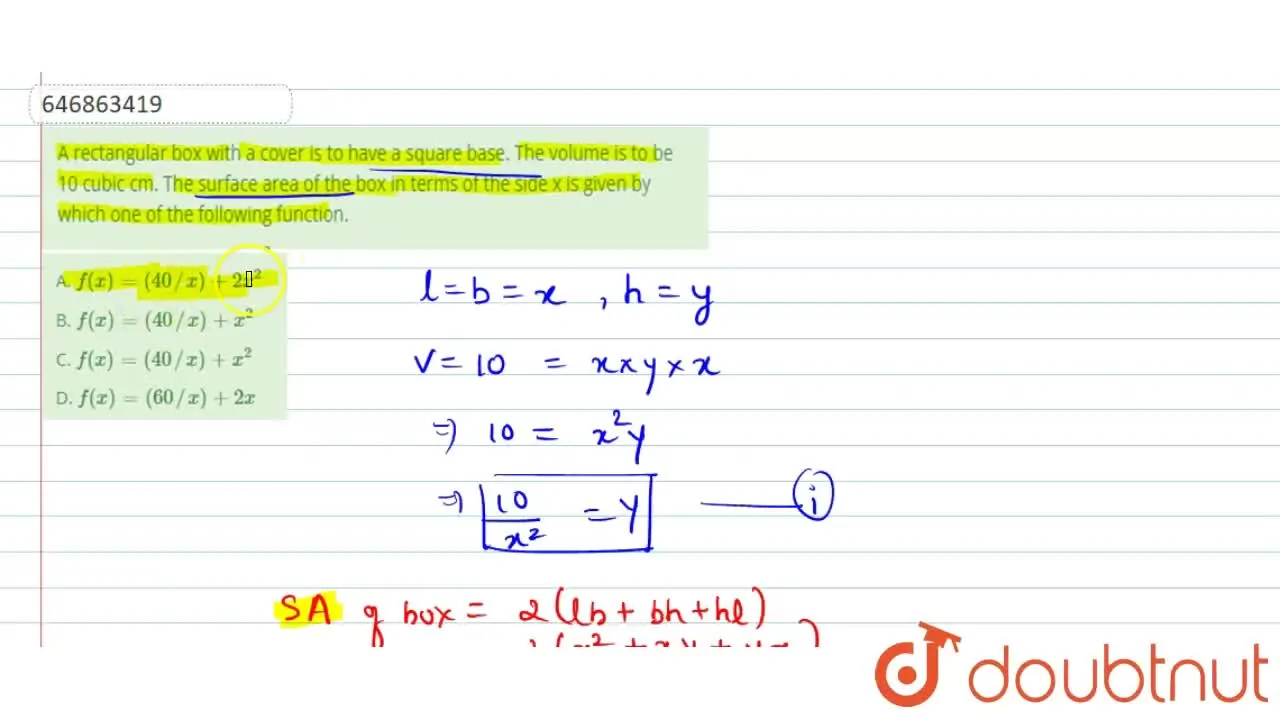 646863419
A rectangular box with a cover is to have a square base. The volume is to be
10 cubic cm. The surface area of the box in terms of the side x is given by
which one of the following function.
A. f(x) = (40/x) + 2x²
B. f(x) = (40/x) + x²
C. f(x) = (40/x) + x²
D. f(x) = (60/x) + 2x
l = b = x , h = y
V = 10 = x × y × x
⇒ 10 = x²y
⇒ 10/x² = y — i
SA of box = 2(lb + bh + hl)
2(x² + xy + yx)
doubtnut